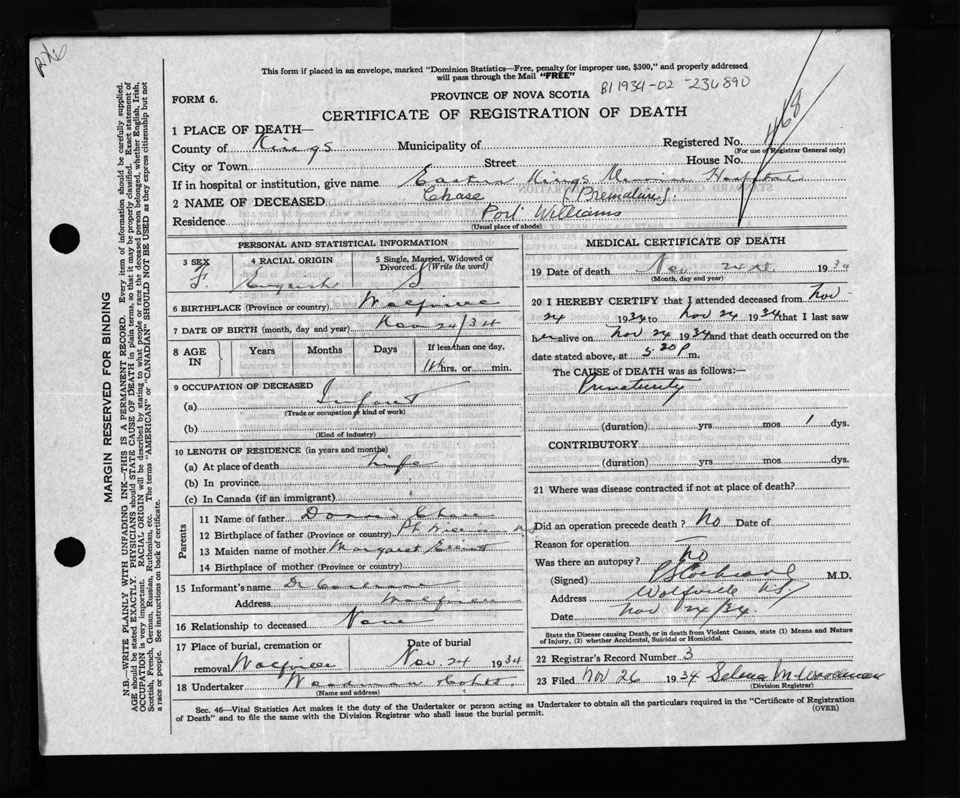 This form if placed in an envelope, marked "Dominion Statistics—Free, penalty for improper use, $300," and properly addressed
will pass through the Mail "FREE"
B1 1934-02 -236890
FORM 6.
PROVINCE OF NOVA SCOTIA
CERTIFICATE OF REGISTRATION OF DEATH
1 PLACE OF DEATH—
County of Kings Municipality of Registered No. 468
(For use of Registrar General only)
City or Town Street House No.
If in hospital or institution, give name Eastern Kings Memorial Hospital
2 NAME OF DECEASED Chase (Premature)
Residence Port Williams
(Usual place of abode)
PERSONAL AND STATISTICAL INFORMATION
3 SEX F. 4 RACIAL ORIGIN English 5 Single, Married, Widowed or Divorced. (Write the word) S
6 BIRTHPLACE (Province or country) Wolfville
7 DATE OF BIRTH (month, day and year) Nov 24/34
8 AGE IN Years Months Days If less than one day,
hrs. or min.
9 OCCUPATION OF DECEASED
(a) Infant
(Trade or occupation or kind of work)
(b)
(Kind of industry)
10 LENGTH OF RESIDENCE (in years and months)
(a) At place of death Life
(b) In province
(c) In Canada (if an immigrant)
Parents
11 Name of father Chase
12 Birthplace of father (Province or country) Pt Williams
13 Maiden name of mother Margaret
14 Birthplace of mother (Province or Country)
15 Informant's name Dr Cochrane
Address Wolfville
16 Relationship to deceased None
17 Place of burial, cremation or removal Wolfville Date of burial Nov. 24 1934
18 Undertaker Woodman
(Name and address)
MEDICAL CERTIFICATE OF DEATH
19 Date of death Nov 24 1934
(Month, day and year)
20 I HEREBY CERTIFY that I attended deceased from Nov
24 1934 to Nov 24 1934 that I last saw
her alive on Nov 24 1934 and that death occurred on the
date stated above, at 5:20 P m.
The CAUSE of DEATH was as follows:
Prematurity
(duration) yrs mos 1 dys.
CONTRIBUTORY
(duration) yrs mos dys.
21 Where was disease contracted if not at place of death?
Did an operation precede death? No Date of
Reason for operation
Was there an autopsy? No
(Signed) M.D.
Address Wolfville NS
Date Nov 24/34.
State the Disease causing Death, or in death from Violent Causes, state (1) Means and Nature
of Injury, (2) whether Accidental, Suicidal or Homicidal.
22 Registrar's Record Number 3
23 Filed Nov 26 1934 Selena M. Woodman
(Division Registrar)
Sec. 46—Vital Statistics Act makes it the duty of the Undertaker or person acting as Undertaker to obtain all the particulars required in the "Certificate of Registration
of Death" and to file the same with the Division Registrar who shall issue the burial permit.
(OVER)
MARGIN RESERVED FOR BINDING
N.B.—WRITE PLAINLY WITH UNFADING INK—THIS IS A PERMANENT RECORD. Every item of information should be carefully supplied.
AGE should be stated EXACTLY. PHYSICIANS should STATE CAUSE OF DEATH in plain terms, so that it may be properly classified. Exact statement of
OCCUPATION is very important. RACIAL ORIGIN will be described by stating to what people or race the deceased person belonged, whether English, Irish,
Scottish, French, German, Russian, Ruthenian, etc. The terms "AMERICAN" or "CANADIAN" SHOULD NOT BE USED as they express citizenship but not
a race or people. See instructions on back of certificate.